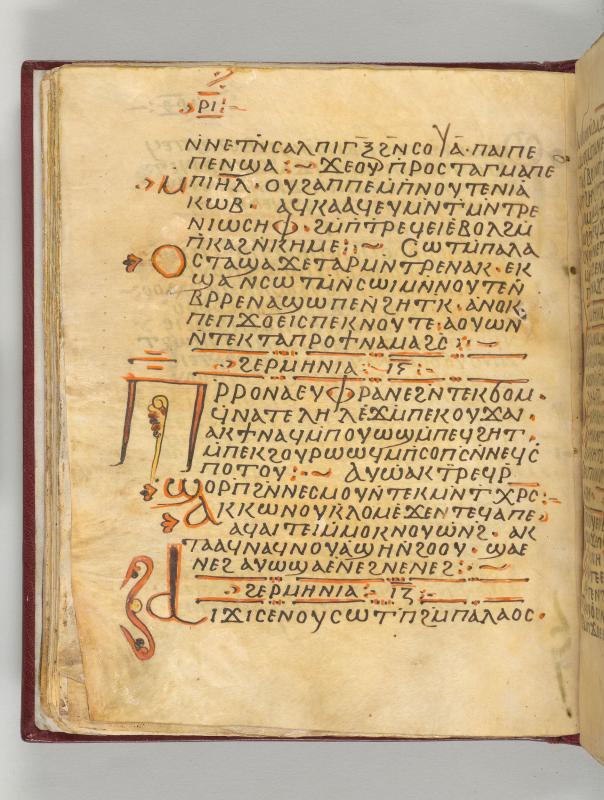 ⲣⲓ
ⲛ̀ⲛⲉⲧⲛ̄ⲥⲁⲗⲡⲓⲅⲝ̄ ϩⲛ̄ⲥⲟⲩⲁ̅· ⲡⲁⲓⲡⲉ
ⲡⲉⲛϣⲁ :~ ϫⲉⲟⲩⲡⲣⲟⲥⲧⲁⲅⲙⲁⲡⲉ
ⲙⲡⲓⲏ̅ⲗ̅· ⲟⲩϩⲁⲡⲡⲉⲙ̄ⲡⲛⲟⲩⲧⲉⲛⲓⲁ
ⲕⲱⲃ· ⲁϥⲕⲁⲁϥⲉⲩⲙⲛ̄ⲧⲙⲛ̄ⲧⲣⲉ
ⲛⲓⲱⲥⲏⲫ· ϩⲙ̄ⲡⲧⲣⲉϥⲉⲓⲉⲃⲟⲗϩⲙ̄
ⲡⲕⲁϩⲛ̄ⲕⲏⲙⲉ :~ Ⲥⲱⲧⲙ̄ⲡⲁⲗⲁ
ⲟⲥⲧⲁϣⲁϫⲉⲧⲁⲣⲙⲛ̄ⲧⲣⲉⲛⲁⲕ· ⲉⲕ
ϣⲁⲛⲥⲱⲧⲙ̄ⲛ̄ⲥⲱⲓⲙⲛ̄ⲛⲟⲩⲧⲉⲛ̄
ⲃⲣ̄ⲣⲉⲛⲁϣⲱⲡⲉⲛ̄ϩⲏⲧⲕ· ⲁⲛⲟⲕ
ⲡⲉⲡϫⲟⲉⲓⲥⲡⲉⲕⲛⲟⲩⲧⲉ· ⲁⲟⲩⲱⲛ
ⲛ̄ⲧⲉⲕⲧⲁⲡⲣⲟϯⲛⲁⲙⲁϩⲥ̄ :~
ϩⲉⲣⲙⲏⲛⲓⲁ :- ⲓ̅ⲋ̅ :-
Ⲡⲣ̄ⲣⲟⲛⲁⲉⲩⲫⲣⲁⲛⲉϩⲛ̄ⲧⲉⲕϭⲟⲙ·
ϥⲛⲁⲧⲉⲗⲏⲗⲉϫⲙ̄ⲡⲉⲕⲟⲩϫⲁⲓ·
ⲁⲕϯⲛⲁϥⲙ̄ⲡⲟⲩⲱϣⲙ̄ⲡⲉϥϩⲏⲧ·
ⲙ̄ⲡⲉⲕϩⲟⲩⲣⲱⲱϥⲙ̄ⲡⲥⲟⲡⲥ̄ⲛ̄ⲛⲉϥⲥ
ⲡⲟⲧⲟⲩ :~ ⲁⲩⲱⲁⲕⲧ̄ⲣⲉϥⲣ̄
ϣⲟⲣⲡϩⲛ̄ⲛⲉⲥⲙⲟⲩⲛ̄ⲧⲉⲕⲙⲛ̄ⲧⲭⲣ̅ⲥ̅:-
ⲁⲕⲕⲱⲛⲟⲩⲕⲗⲟⲙⲉϫⲉⲛⲧⲉϥⲁⲡⲉ·
ⲁϥⲁⲓⲧⲉⲓⲙ̄ⲙⲟⲕⲛⲟⲩⲱⲛϩ̄· ⲁⲕ
ⲧⲁⲁϥⲛⲁϥⲛⲟⲩⲁϣⲏⲛ̄ϩⲟⲟⲩ· ϣⲁⲉ
ⲛⲉϩⲁⲩⲱϣⲁⲉⲛⲉϩⲛⲉⲛⲉϩ :~
ϩⲉⲣⲙⲏⲛⲓⲁ :- ⲓ̅ⲍ̅ :-
Ⲁⲓϫⲓⲥⲉⲛⲟⲩⲥⲱⲧⲡ̄ϩⲙ̄ⲡⲁⲗⲁⲟⲥ·